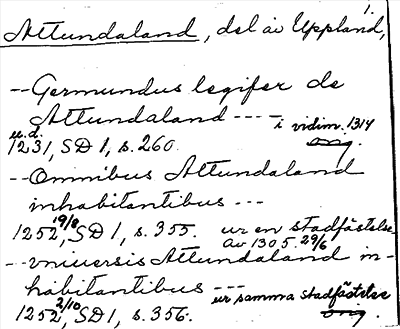 1.
Attundaland, del av Uppland,
-- Germundus legifer de
Attundaland ---- i vidim. 1314
u.d.
1231, SD 1, s. 260. orig.
-- Omnibus Attundaland
inhabitantibus ---
1252 19/8, SD 1, s. 355. ur en stadfästelse
av 1305 29/6
--- vniuersis Attundaland in-
habitantibus --- ur samma stadfästelse
1252 2/10, SD 1, s. 356. orig.